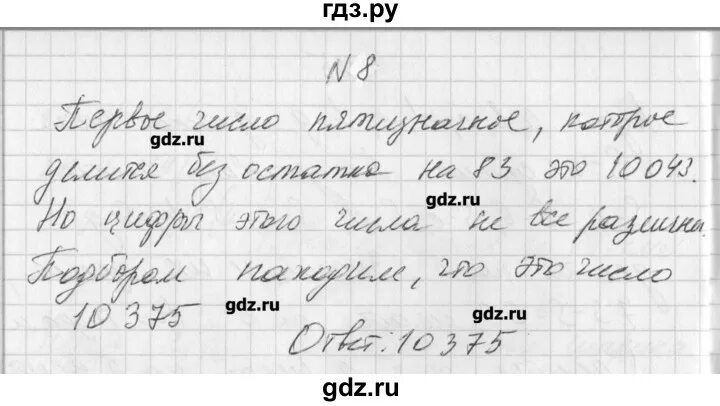 гдз.ру
N 8
Первое число пятизначное, которое
gdz.ru
делится без остатка на 83 это 10043.
gdz.ru
Но цифры этого числа не все различны.
Подбором находим, что это число
10375
gdz.ru
gdz.ru
Ответ: 10375
gdz.ru